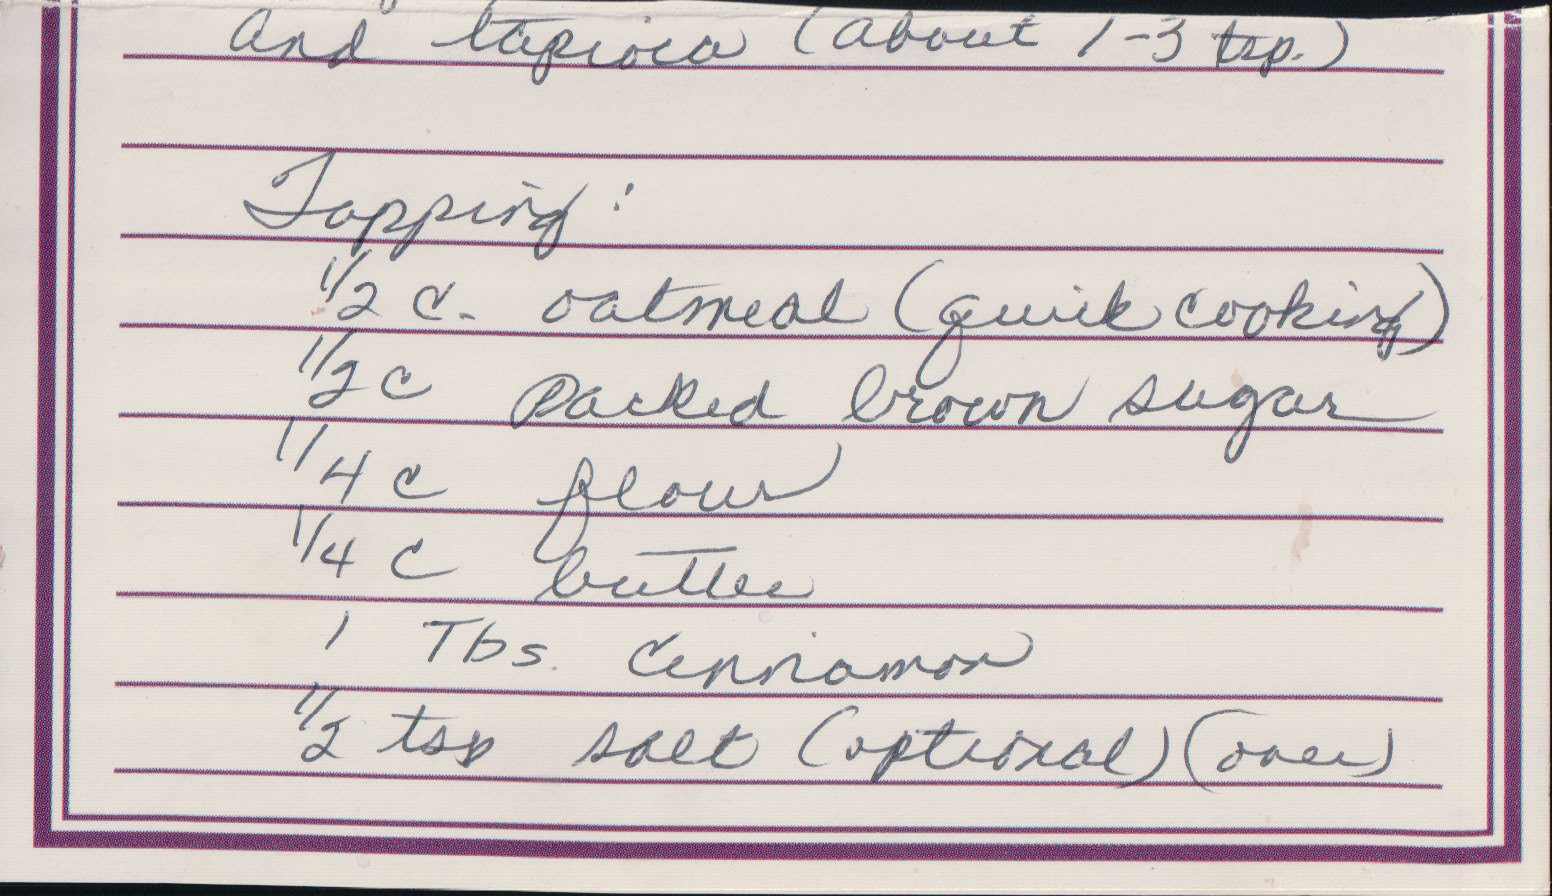 and tapioca (about 1-3 tsp.)
Topping:
1/2 c. oatmeal (quick cooking)
1/2 c packed brown sugar
1/4 c flour
1/4 c butter
1 Tbs. Cinnamon
1/2 tsp salt (optional) (over)